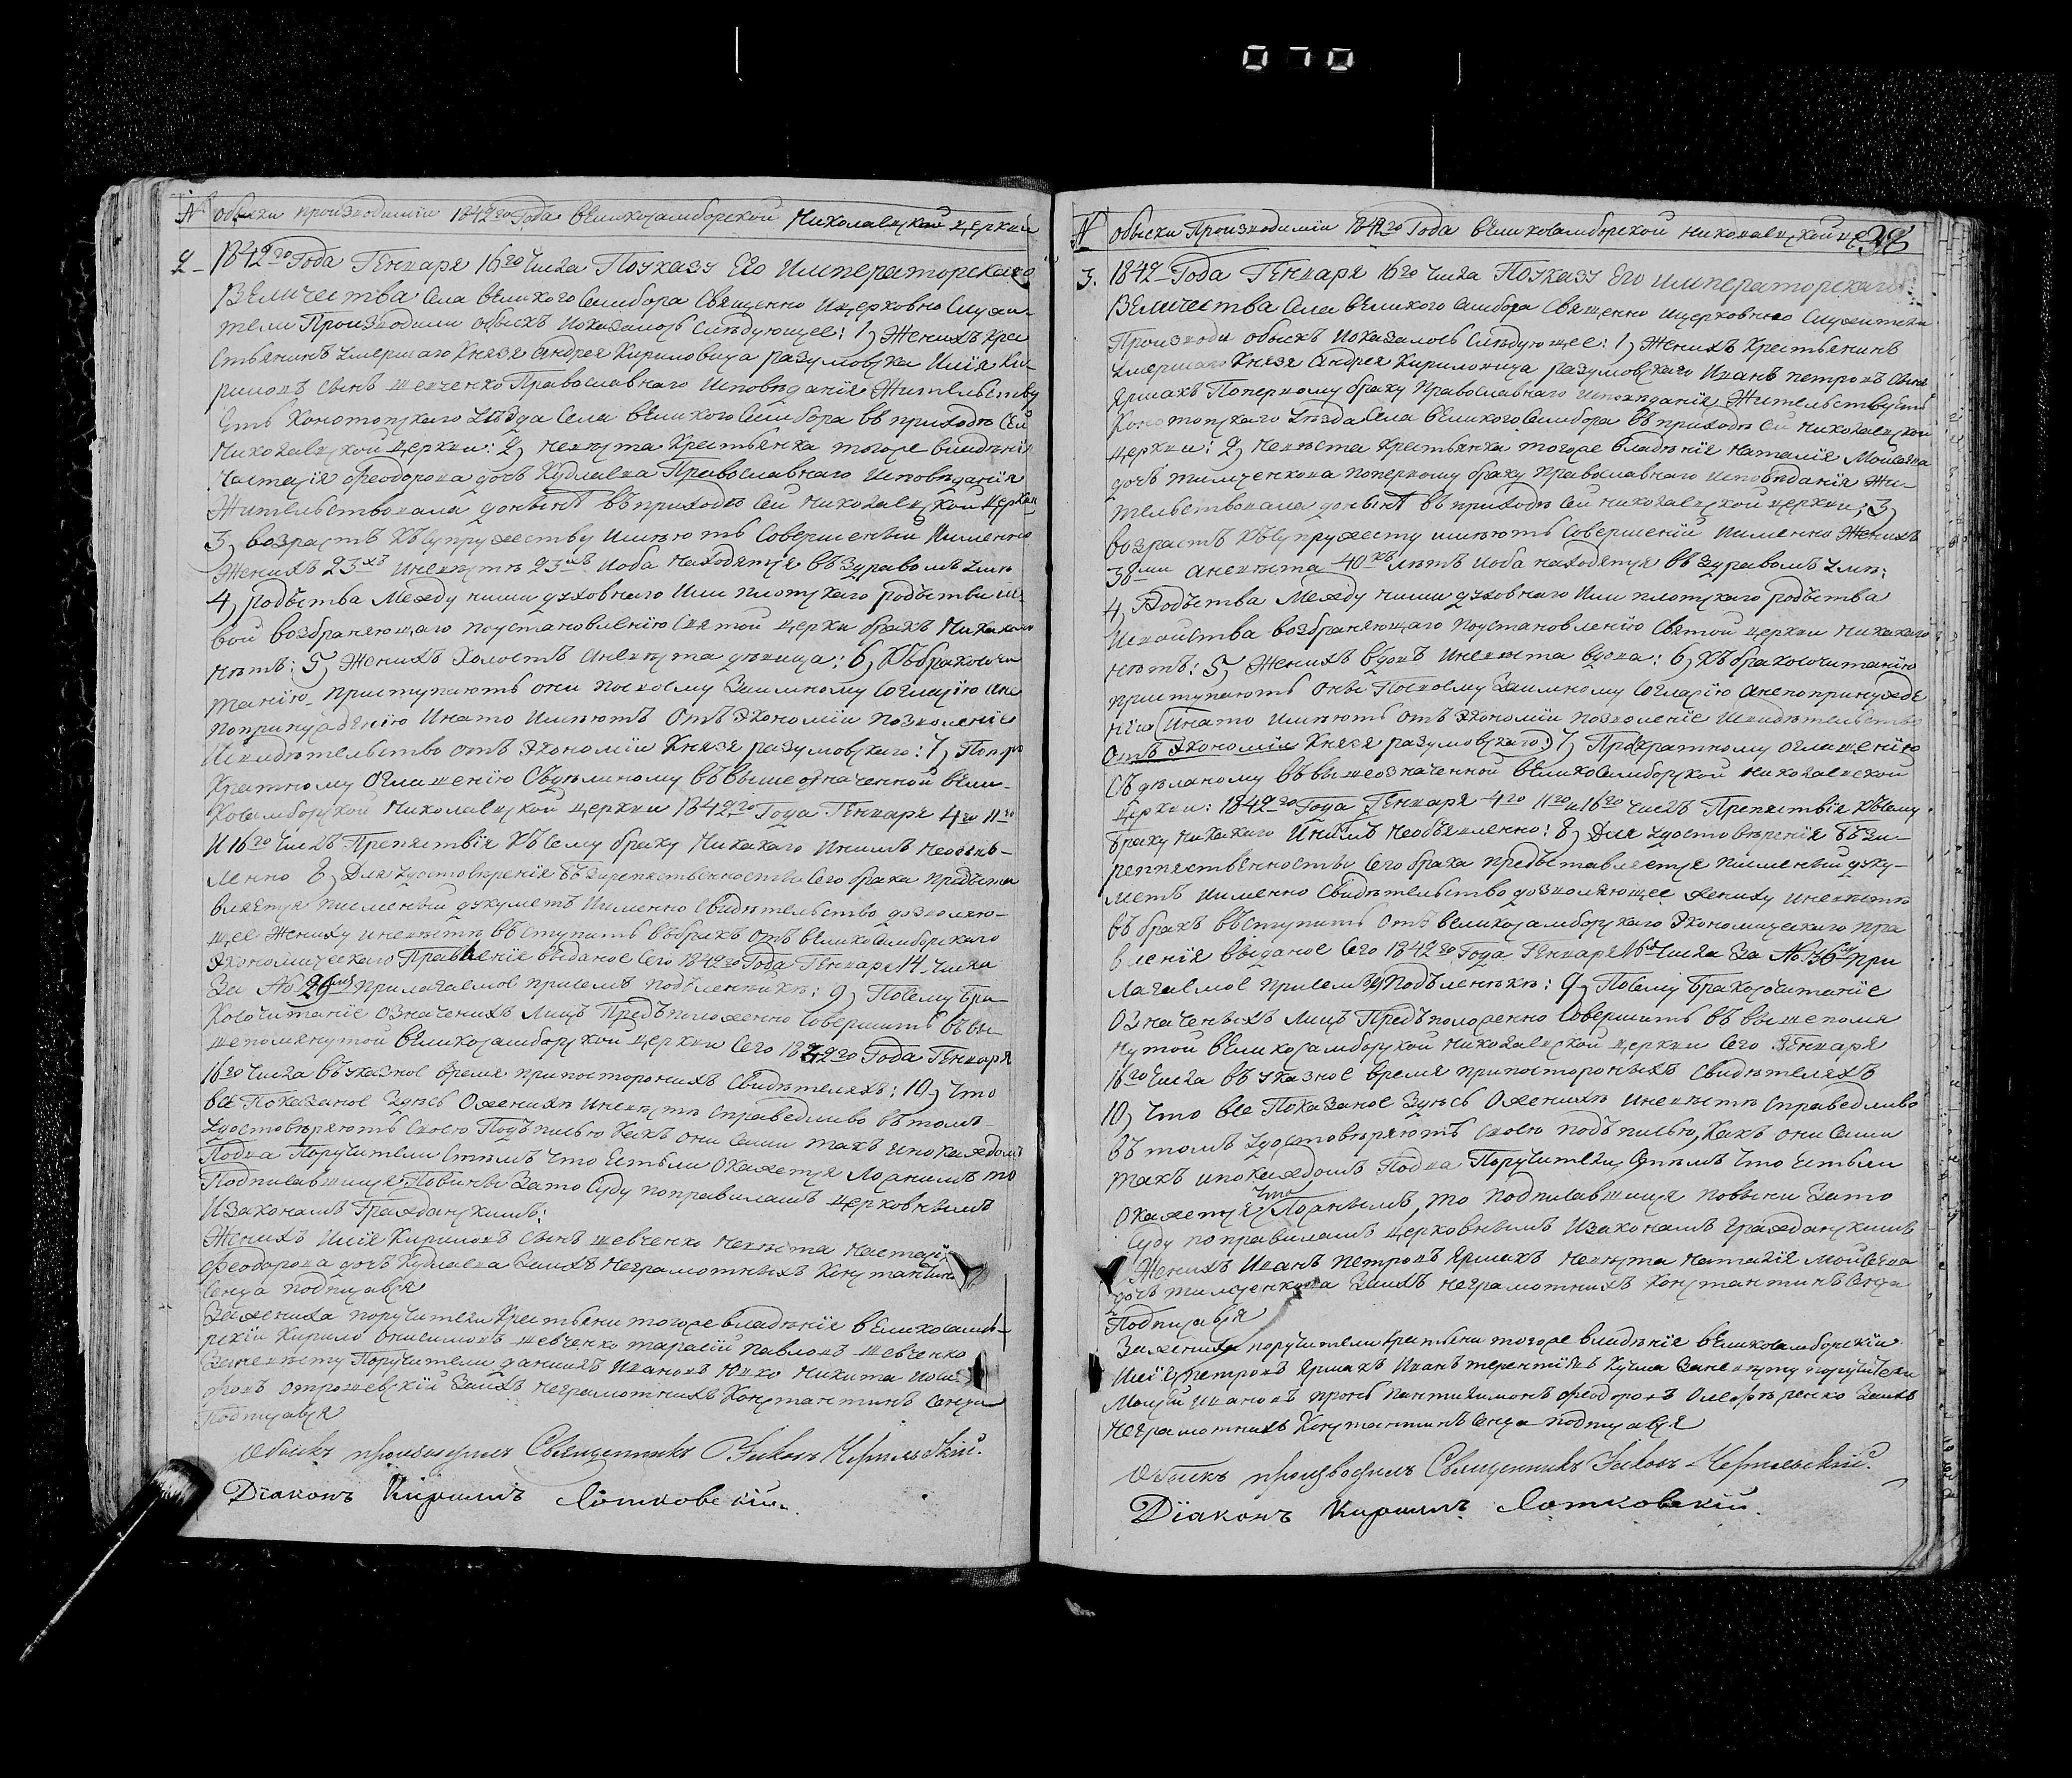 070
№ обыски производиміи 1842го Года великосамборской Николаевской церкви
2 1842го Года Генваря 16го Числа Поуказу Его Императорскаго
Величества Села великого Самбора Священно Ицерковно Служи-
тели Производили обыскъ Иоказалось слѣдующее: 1, Женихъ Кре
стьянинъ умершаго Князя Андрея Кириловича разумовска Илія Ки-
риловъ сынъ шевченко Православнаго Исповѣданія Жительству
етъ Конотопскаго уѣзда Села великого Самбора въ приходѣ Сей
Николаевской церкви: 2, невѣста Крестьянка тогоже владѣнія
Настасія феодорова дочь Кудлаева Православнаго Исповѣданія
Жительствовала донынѣ въ приходѣ Сей николаевской церкви
3, возрастъ Къ супружеству имѣютъ Совершеный Именно
Женихъ 23хъ Иневѣста 23хъ Иоба находятся въ здравомъ умѣ
4, родъства Между ними духовнаго Или плотскаго родъства ис-
вой возбраняющаго поустановленію святой церкви бракъ никакого
нѣтъ: 5, Женихъ Холостъ Иневѣста дѣвица: 6, Къ бракосочи
танію приступаютъ они посвоему Взаимному согласію Ане
попринуждению Инато Имѣютъ Отъ Экономіи позволеніе
Исвидѣтельство отъ Экономіи Князя разумовскаго: 7, Потро
Кратному Оглашенію Сдѣланому въ Выше означенной вели-
Косамборской Николаевской церкви 1842го Года Генваря 4го 11го
И 16го Числъ Препятствія Къ Сему браку Никакаго Инимъ необъяв-
ленно 8, Для удостовѣренія Безпрепятственности Сего брака предъста
вляется писменый дукуметъ Именно Свидѣтельство дозволяю-
щее Жениху иневѣстѣ въступить въ бракъ отъ великосамборскаго
Экономическаго Правленіе выданое Сего 1842го Года Генваря 14 числа
За № 26мъ прилагаемое присемъ подълѣникъ: 9, Посему бра
Косочитаніе означеныхъ Лицъ Предъположенно Совершить въ вы-
шепомянутой великосамборской церкви Сего 1842го Года Генваря
16го Числа въ указное время припостороныхъ Свидѣтеляхъ: 10, что
все Показаное Здѣсь Оженихѣ Иневѣстѣ справедливо въ томъ
удостовѣряютъ своею Подъписью Какъ они сами такъ ипокаждомъ
Подва Поручители Стѣмъ что Естьли Окажется Ложнымъ то
Подписавшиися Повины Зато Суду поправиламъ церковнымъ
Изаконамъ Гражданскимъ:
Женихъ Илія Кириловъ сынъ шевченко невѣста Настасія
феодорова дочь Кудлаева Заихъ неграмотныхъ Константинъ
Сенца подписался
Зажениха поручители Крестьяни тогоже владѣнія великосамбо-
рскіи Кирило онисимовъ шевченко тарасій Павловъ шевченко
Заневѣсту Поручители даніилъ Ивановъ Юнко Никита
Заихъ неграмотнихъ Константинъ Сенца
Подписался
Обыскъ производилъ Священникъ Чернявскій.
Діаконъ Кириллъ Лотковскій.
№ обыски Производиміи 1842го Года великосамборской николаевской
3. 1842 Года Генваря 16го Числа Поуказу Его Императорскаго
Величества Села великого Самбора Священно ицерковнно Служители
Производи обыскъ Иоказалось Слѣдующее: 1, Женихъ Крестьянинъ
умершаго Князя Андрея Кириловича разумовскаго Иванъ петровъ сынъ
Ярмакъ Поперному браку Православнаго исповѣданія Жительствуетъ
Конотопскаго уѣзда Села великого Самбора въ приходѣ Сей Николаевской
церкви: 2, невѣста Крестьянка тогоже владѣніе Наталія Моисѣева
дочь тимченкова поперному браку Православнаго исповѣданія Жи-
тельствовала донынѣ въ приходѣ Сей николаевской церкви; 3,
возрастъ Къ Супружесту имѣютъ Совершеный Именно Женихъ
38ми Аневѣста 40хъ лѣтъ Иоба находятся въ здравомъ умѣ:
4, Родъства Между ними духовнаго Или плотскаго родъства
Исвойства возбраняющаго Поустановленію Святой церкви никакаго
нѣтъ: 5, Женихъ вдовъ Иневѣста вдова: 6, Къ бракосочитанію
приступаютъ онѣ Посвоему Взаимному согласію Анепопринужде
нію Инато имѣютъ отъ Экономіи позволеніе Исвидѣтельство
Отъ Экономіи Князя разумовскаго: 7, Потрократному оглашенію
Сдѣланому въ вышеозначенной великосамборской николаевской
церкви: 1842го Года Генваря 4го 11го и 16го числъ Препятствія Къ Сему
браку никакаго Инимъ необъявленно: 8, Для удостовѣренія Безп-
репятственности Сего брака предъставляется писменый дуку-
метъ именно Свидѣтельство дозволяющее жениху иневѣстѣ
въ бракъ въступить отъ великосамборскаго Экономическаго пра
вленія выданое Сего 1842го Года Генваря 16го числа За № 36 при
лагаемое присемъ Подълѣникъ: 9, Посему бракосочитаніе
Означеныхъ Лицъ Предъположенно Совершить въ вышепомя
нутой великосамборской николаевской церкви Сего Генваря
16го Числа въ указное время припостороныхъ Свидѣтеляхъ
10, что все Показаное Здѣсь Оженихѣ иневѣстѣ справедливо
въ томъ удостовѣряютъ своею подъписью, Какъ они Сами
такъ ипокаждомъ Подва Поручители Стѣмъ что Естьли
что
окажется Ложнымъ, то подписавшиися повины Зато
Суду поправиламъ церковнымъ Изаконамъ Гражданскимъ
Женихъ Иванъ петровъ Ярмакъ невѣста наталія моисѣева
дочь тимченкова Заихъ неграмотнихъ Константинъ Сенца
Подписался
Зажениха поручители Крестьяни тогоже владѣніе великосамборскіи
Илія петровъ Ярмакъ Иванъ терентіевъ Кучма Заневѣсту поручители
Моисѣй Ивановъ пронь пантилимонъ феодоровъ Олеференко Заихъ
неграмотнихъ Константинъ Сенца подписался
Обыскъ производилъ Священникъ Чернявскій.
Діаконъ Кириллъ Лотковскій.